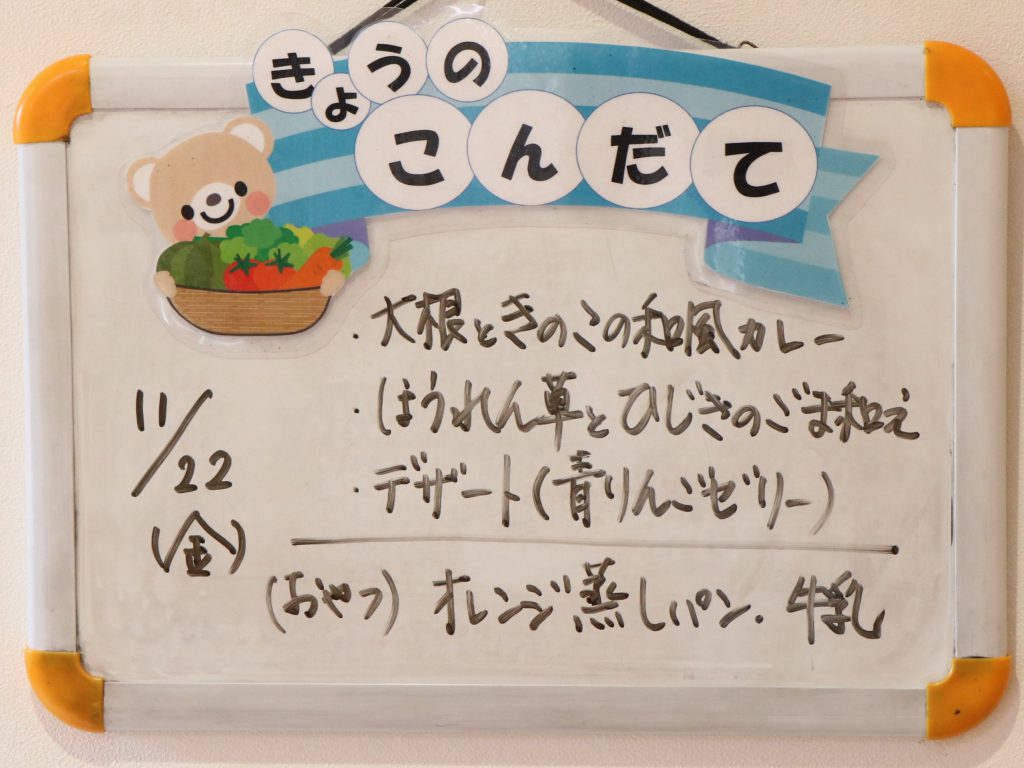 きょうの
こんだて
・大根ときのこの和風カレー
・ほうれん草とひじきのごま和え
・デザート(青りんごゼリー)
11/22
(金)
(おやつ) オレンジ蒸しパン. 牛乳